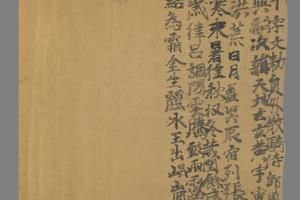 千字文勅員外散騎侍郎周
興嗣次韻天地玄黃宇宙
洪荒日月盈昃辰宿列張
寒来暑往秋收冬藏閏餘成
歲律呂調陽雲騰致雨露
結為霜金生麗水玉出崑崗